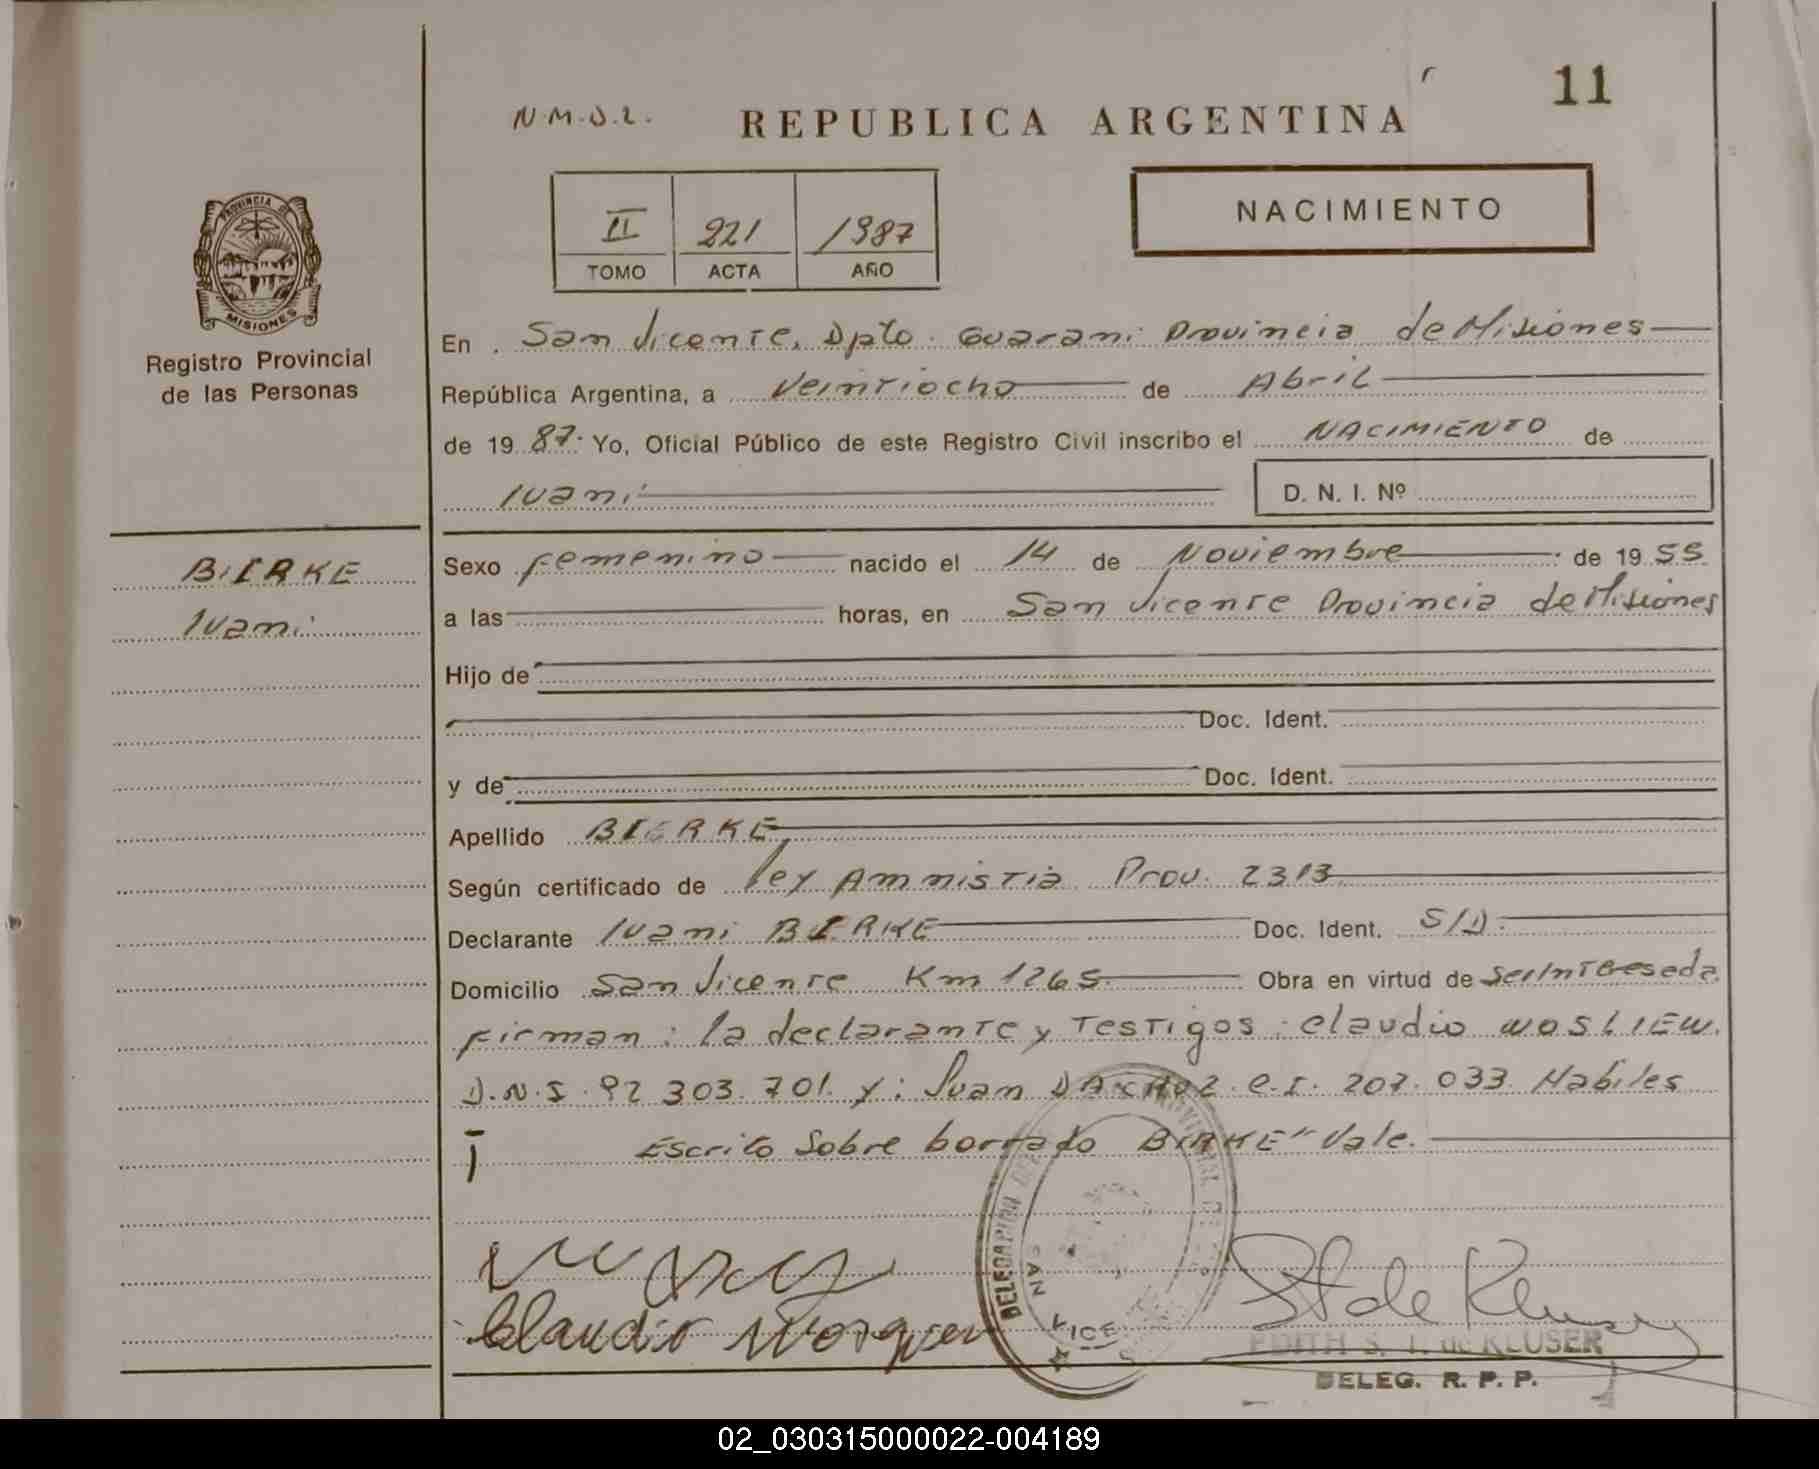 11
N.M.D.L.
REPUBLICA ARGENTINA
II 221 1987
TOMO ACTA AÑO
NACIMIENTO
PROVINCIA DE
MISIONES
Registro Provincial
de las Personas
En San Vicente, Dpto. Guarani Provincia de Misiones
República Argentina, a Veintiocho de Abril
de 19 87. Yo, Oficial Público de este Registro Civil inscribo el NACIMIENTO de
Ivani
D. N. I. Nº
BIERKE
Ivani
Sexo femenino nacido el 14 de Noviembre de 19 55
a las horas, en San Vicente Provincia de Misiones
Hijo de
Doc. Ident.
y de Doc. Ident.
Apellido BIERKE
Según certificado de ley Amnistia Prov. 2313
Declarante Ivani BIERKE Doc. Ident. S/D.
Domicilio San Vicente Km 1265 Obra en virtud de ser Interesada
firman: la declarante y Testigos: Claudio WOSLIEW.
D.N.I. 92 303.701. y: Juan DACHOZ. C.I. 207.033 Habiles
Escrito Sobre borrado BIRKE" Vale.
DELEGACION
SAN VICE
Claudio
St de Kluser
EDITH S. T. de KLUSER
DELEG. R. P. P.
02_030315000022-004189